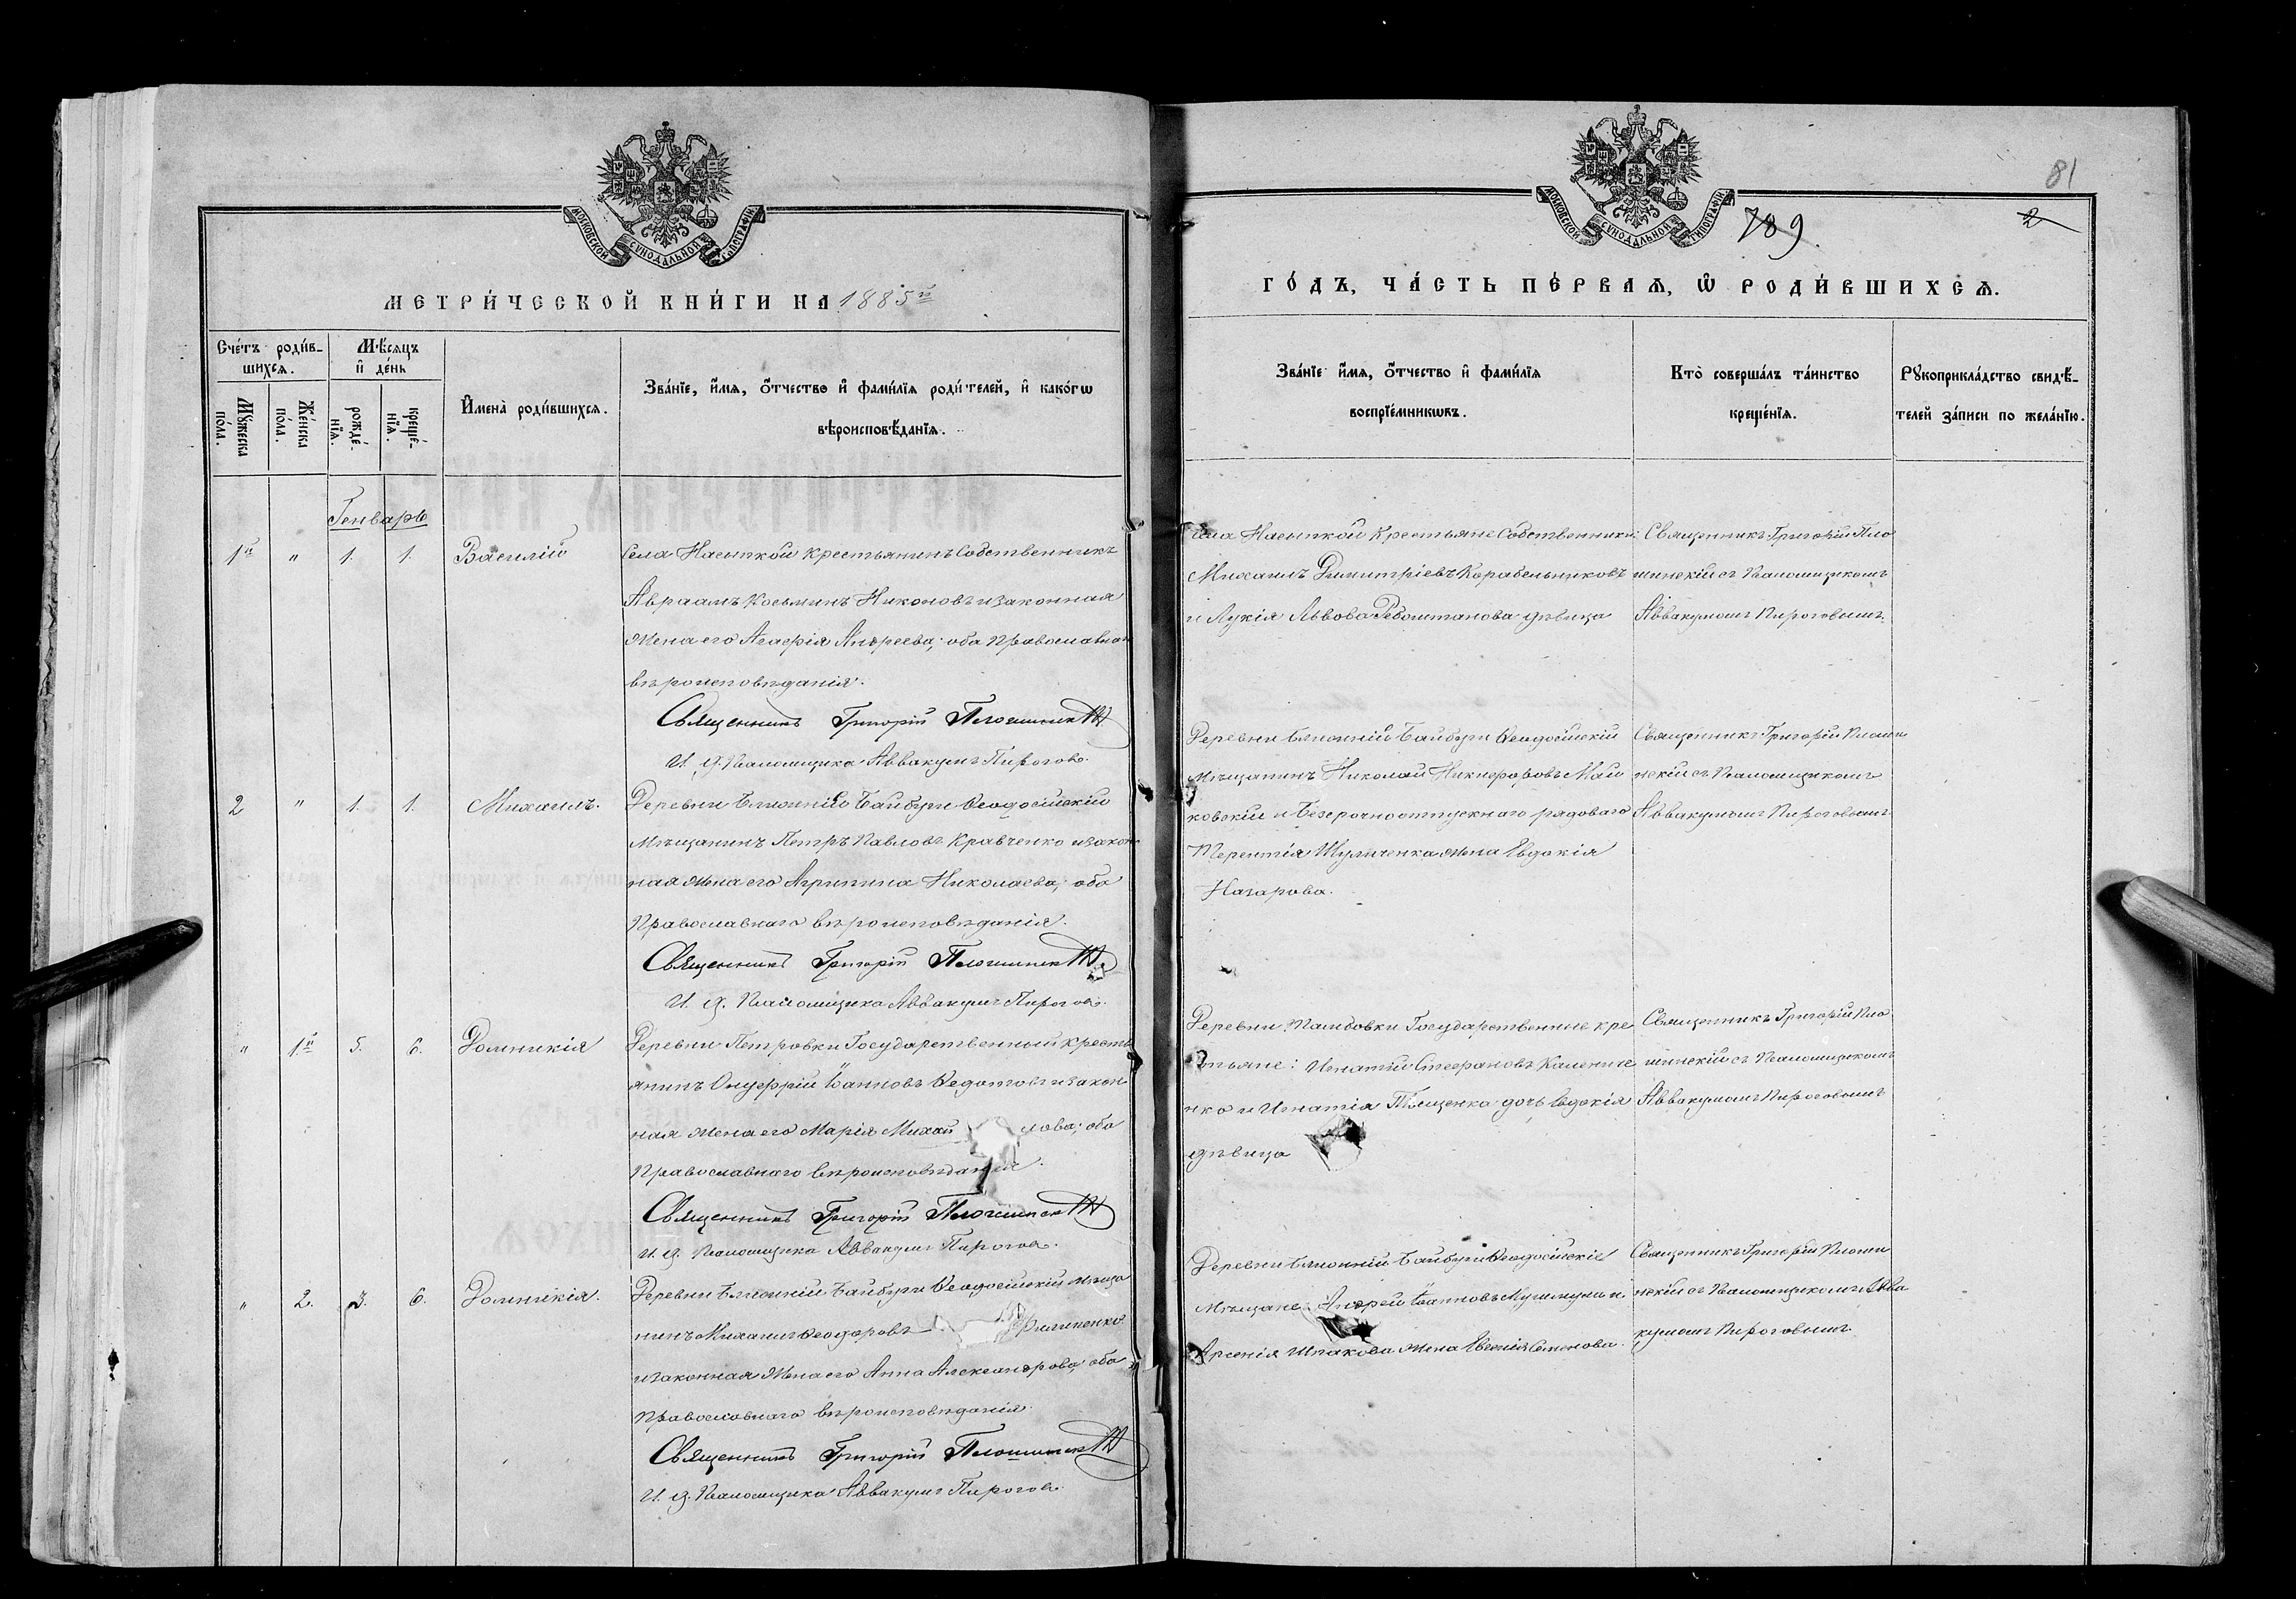 МОСКОВСКОЙ СУНОДАЛЬНОЙ ТИПОГРАФІИ
МЕТРИ́ЧЕСКОЙ КНИ́ГИ НА 1885й
Сче́тъ роди́в-
шихсѧ.
Мѣ́сѧцъ
и҆ де́нь
Мꙋ́жеска
по́ла.
Же́нска
по́ла.
рожде́-
нїѧ.
креще́-
нїѧ.
И҆мена̀ роди́вшихсѧ.
Зва́нїе, и҆́мѧ, ѻ҆́тчество и҆ фами́лїѧ роди́телей, и҆ како́гѡ
вѣроисповѣ́данїѧ.
Генварь
1й " 1. 1. Василій
Села Насыпкой Крестьянинъ Собственникъ
Авраамъ Косьминъ Никоновъ и законная
жена его Агафія Андреева; оба Православнаго
вѣроисповѣданія.
Священникъ Григорій
И. д. Псаломщика Аввакумъ Пироговъ.
2 " 1. 1. Михаилъ.
Деревни Ближній Байбуги Ѳеодосійскій
Мѣщанинъ Петръ Павловъ Кравченко и закон
ная жена его Агрипина Николаева; оба
Православнаго вѣроисповѣданія.
Священникъ Григорій
И. д. Псаломщика Аввакумъ Пироговъ.
" 1й 5. 6. Домникія
Деревни Петровки Государственный кресть
янинъ Онуфрій Іоанновъ Ѳедотовъ и закон
ная жена его Марія Михай лова; оба
Православнаго вѣроисповѣданія.
Священникъ Григорій
И. д. Псаломщика Аввакумъ Пироговъ.
" 2. 3. 6. Домникія.
Деревни Ближній Байбуги Ѳеодосійскій мѣща
нинъ Михаилъ Ѳеодоровъ Филипенко
и законная жена его Анна Александрова, оба
Православнаго вѣроисповѣданія.
Священникъ Григорій
И. д. Псаломщика Аввакумъ Пироговъ.
МОСКОВСКОЙ СУНОДАЛЬНОЙ ТИПОГРАФІИ
81
789.
2
ГО́ДЪ, ЧА́СТЬ ПЕ́РВАѦ, Ѡ҆ РОДИ́ВШИХСѦ.
Зва́нїе и҆́мѧ, ѻ҆́тчество и҆ фами́лїѧ
воспрїе́мникѡвъ.
Кто̀ соверша́лъ та́инство
креще́нїѧ.
Рꙋкоприкла́дство свидѣ́-
телей за́писи по жела́нїю.
Села Насыпкой Крестьяне Собственники:
Михаилъ Димитріевъ Корабельниковъ
и Лукія Львова дѣвица
Священникъ Григорій Пло
шинскій съ Псаломщикомъ
Аввакумомъ Пироговымъ.
Деревни Ближній Байбуги Ѳеодосійскій
Мѣщанинъ Николай Никифоровъ Май
ковскій и безсрочноотпускнаго рядоваго
Терентія жена Евдокія
Назарова.
Священникъ Григорій Плоши
нскій съ Псаломщикомъ
Аввакумомъ Пироговымъ
Деревни Государственные кре
стьяне: Игнатій Стефановъ
нко и Игнатія дочь Евдокія
дѣвица
Священникъ Григорій Пло
шинскій съ Псаломщикомъ
Аввакумомъ Пироговымъ
Деревни Ближній Байбуги Ѳеодосійскіе
Мѣщане: Андрей Іоанновъ и
Арсенія Шпакова жена Евгенія Семенова.
Священникъ Григорій Плоши
нскій съ Псаломщикомъ Авва
кумомъ Пироговымъ.